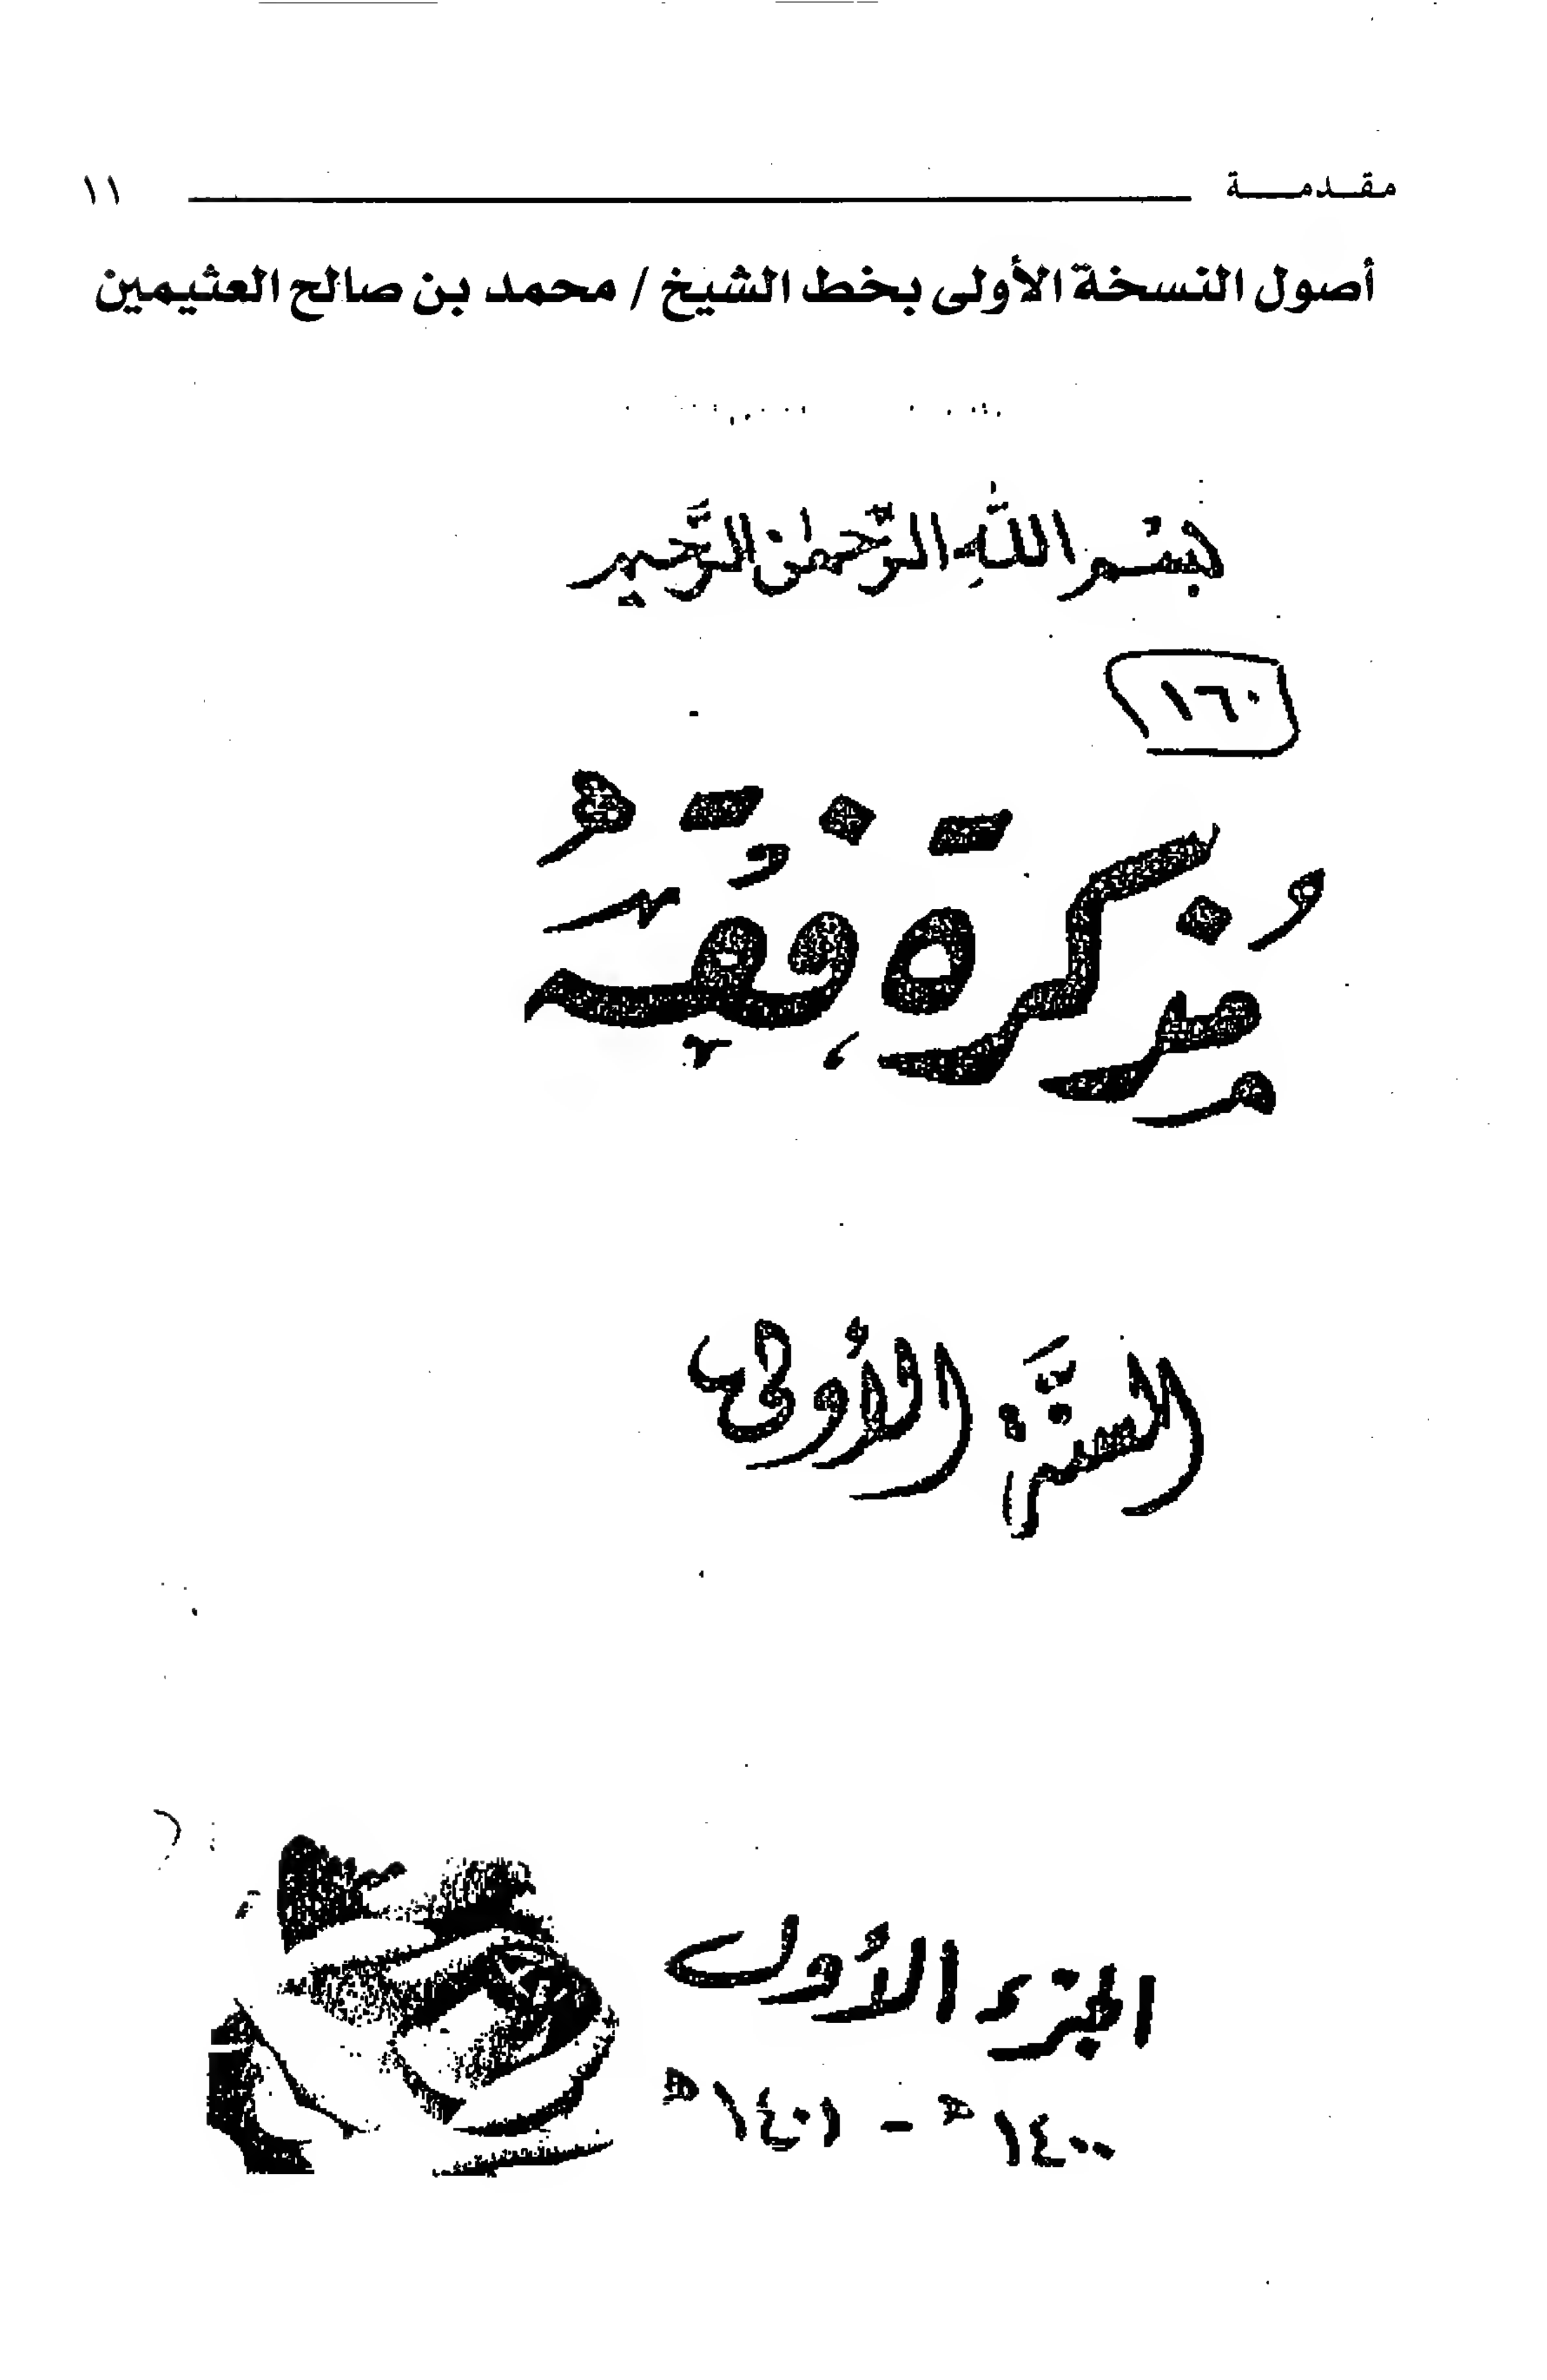 مقدمة ١١
أصول النسخة الأولى بخط الشيخ / محمد بن صالح العثيمين
بسم الله الرحمن الرحيم
١٦٠
مذكرة فقه
السنة الأولى
الجزء الأول
١٤٠٠ هـ - ١٤٠١ هـ